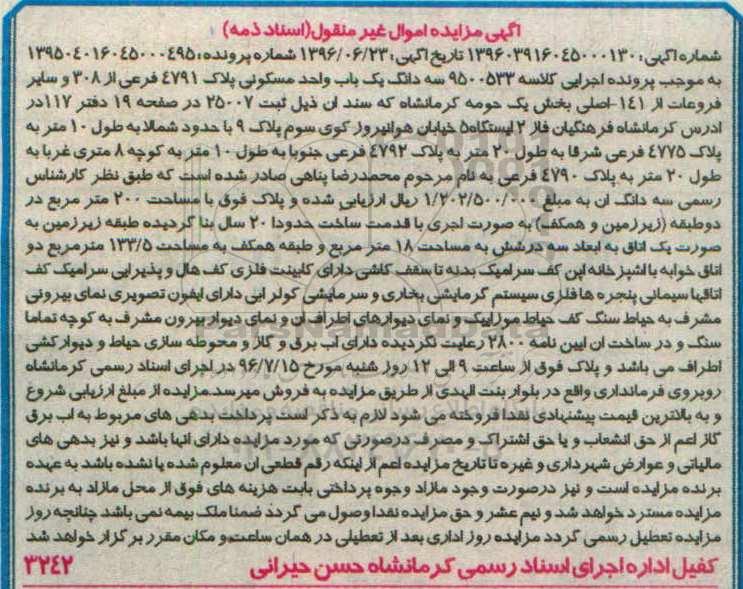 آگهی مزایده اموال غیر منقول(اسناد ذمه)
شماره آگهی: ۱۳۹۶۰۳۹۱۶۰۴۵۰۰۰۱۳۰ تاریخ آگهی: ۱۳۹۶/۰۶/۲۳ شماره پرونده: ۱۳۹۵۰۴۰۱۶۰۴۵۰۰۰۴۹۵
به موجب پرونده اجرایی کلاسه ۹۵۰۰۵۳۳ سه دانگ یک باب واحد مسکونی پلاک ۴۷۹۱ فرعی از ۳۰۸ و سایر
فروعات از ۱۴۱-اصلی بخش یک حومه کرمانشاه که سند آن ذیل ثبت ۲۵۰۰۷ در صفحه ۱۹ دفتر ۱۱۷در
ادرس کرمانشاه فرهنگیان فاز ۲ ایستگاه۵ خیابان هوانیروز کوی سوم پلاک ۹ با حدود شمالا به طول ۱۰ متر به
پلاک ۴۷۷۵ فرعی شرقا به طول ۲۰ متر به پلاک ۴۷۹۲ فرعی جنوبا به طول ۱۰ متر به کوچه ۸ متری غربا به
طول ۲۰ متر به پلاک ۴۷۹۰ فرعی به نام مرحوم محمدرضا پناهی صادر شده است که طبق نظر کارشناس
رسمی سه دانگ آن به مبلغ ۱/۲۰۲/۵۰۰/۰۰۰ ریال ارزیابی شده و پلاک فوق با مساحت ۲۰۰ متر مربع در
دوطبقه (زیرزمین و همکف) به صورت اجری با قدمت ساخت حدودا ۲۰ سال بنا گردیده طبقه زیرزمین به
صورت یک اتاق به ابعاد سه درشش به مساحت ۱۸ متر مربع و طبقه همکف به مساحت ۱۳۳/۵ مترمربع دو
اتاق خوابه با اشپزخانه اپن کف سرامیک بدنه تا سقف کاشی دارای کابینت فلزی کف هال و پذیرایی سرامیک کف
اتاقها سیمانی پنجره ها فلزی سیستم گرمایشی بخاری و سرمایشی کولر ابی دارای ایفون تصویری نمای بیرونی
مشرف به حیاط سنگ کف حیاط موزاییک و نمای دیوارهای اطراف آن و نمای دیوار بیرون مشرف به کوچه تماما
سنگ و در ساخت آن ایین نامه ۲۸۰۰ رعایت نگردیده دارای اب برق و گاز و محوطه سازی حیاط و دیوارکشی
اطراف می باشد و پلاک فوق از ساعت ۹ الی ۱۲ روز شنبه مورخ ۹۶/۷/۱۵ در اجرای اسناد رسمی کرمانشاه
روبروی فرمانداری واقع در بلوار بنت الهدی از طریق مزایده به فروش میرسد.مزایده از مبلغ ارزیابی شروع
و به بالاترین قیمت پیشنهادی نقدا فروخته می شود لازم به ذکر است پرداخت بدهی های مربوط به اب برق
گاز اعم از حق انشعاب و یا حق اشتراک و مصرف درصورتی که مورد مزایده دارای آنها باشد و نیز بدهی های
مالیاتی و عوارض شهرداری و غیره تا تاریخ مزایده اعم از اینکه رقم قطعی آن معلوم شده یا نشده باشد به عهده
برنده مزایده است و نیز درصورت وجود مازاد وجوه پرداختی بابت هزینه های فوق از محل مازاد به برنده
مزایده مسترد خواهد شد و نیم عشر و حق مزایده نقدا وصول می گردد ضمنا ملک بیمه نمی باشد چنانچه روز
مزایده تعطیل رسمی گردد مزایده روز اداری بعد از تعطیلی در همان ساعت و مکان مقرر برگزار خواهد شد
کفیل اداره اجرای اسناد رسمی کرمانشاه حسن حیرانی ۳۲۴۲